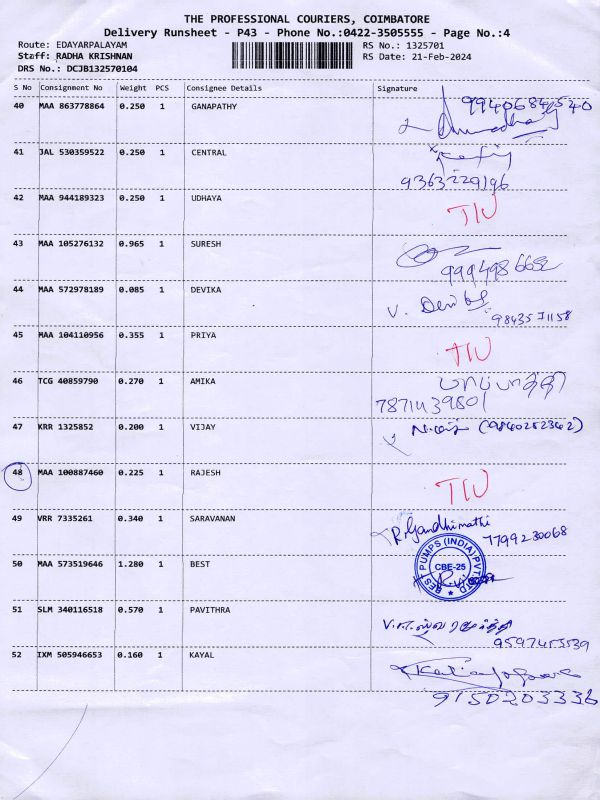 THE PROFESSIONAL COURIERS, COIMBATORE
Delivery Runsheet - P43 - Phone No.:0422-3505555 - Page No.:4
Route: EDAYARPALAYAM RS No.: 1325701
Staff: RADHA KRISHNAN RS Date: 21-Feb-2024
DRS No.: DCJB132570104
S No Consignment No Weight PCS Consignee Details Signature
40 MAA 863778864 0.250 1 GANAPATHY
41 JAL 530359522 0.250 1 CENTRAL
9363229196
42 MAA 944189323 0.250 1 UDHAYA TIU
43 MAA 105276132 0.965 1 SURESH
9994986652
44 MAA 572978189 0.085 1 DEVIKA V. Devika
9843571158
45 MAA 104110956 0.355 1 PRIYA TIU
46 TCG 40859790 0.270 1 AMIKA
7871439801
47 KRR 1325852 0.200 1 VIJAY (9840252362)
48 MAA 100887460 0.225 1 RAJESH TIU
49 VRR 7335261 0.340 1 SARAVANAN R. Gandhimathi
7799230068
50 MAA 573519646 1.280 1 BEST BEST PUMPS (INDIA) PVT. LTD CBE-25
51 SLM 340116518 0.570 1 PAVITHRA
9597455539
52 IXM 505946653 0.160 1 KAYAL
9150203336